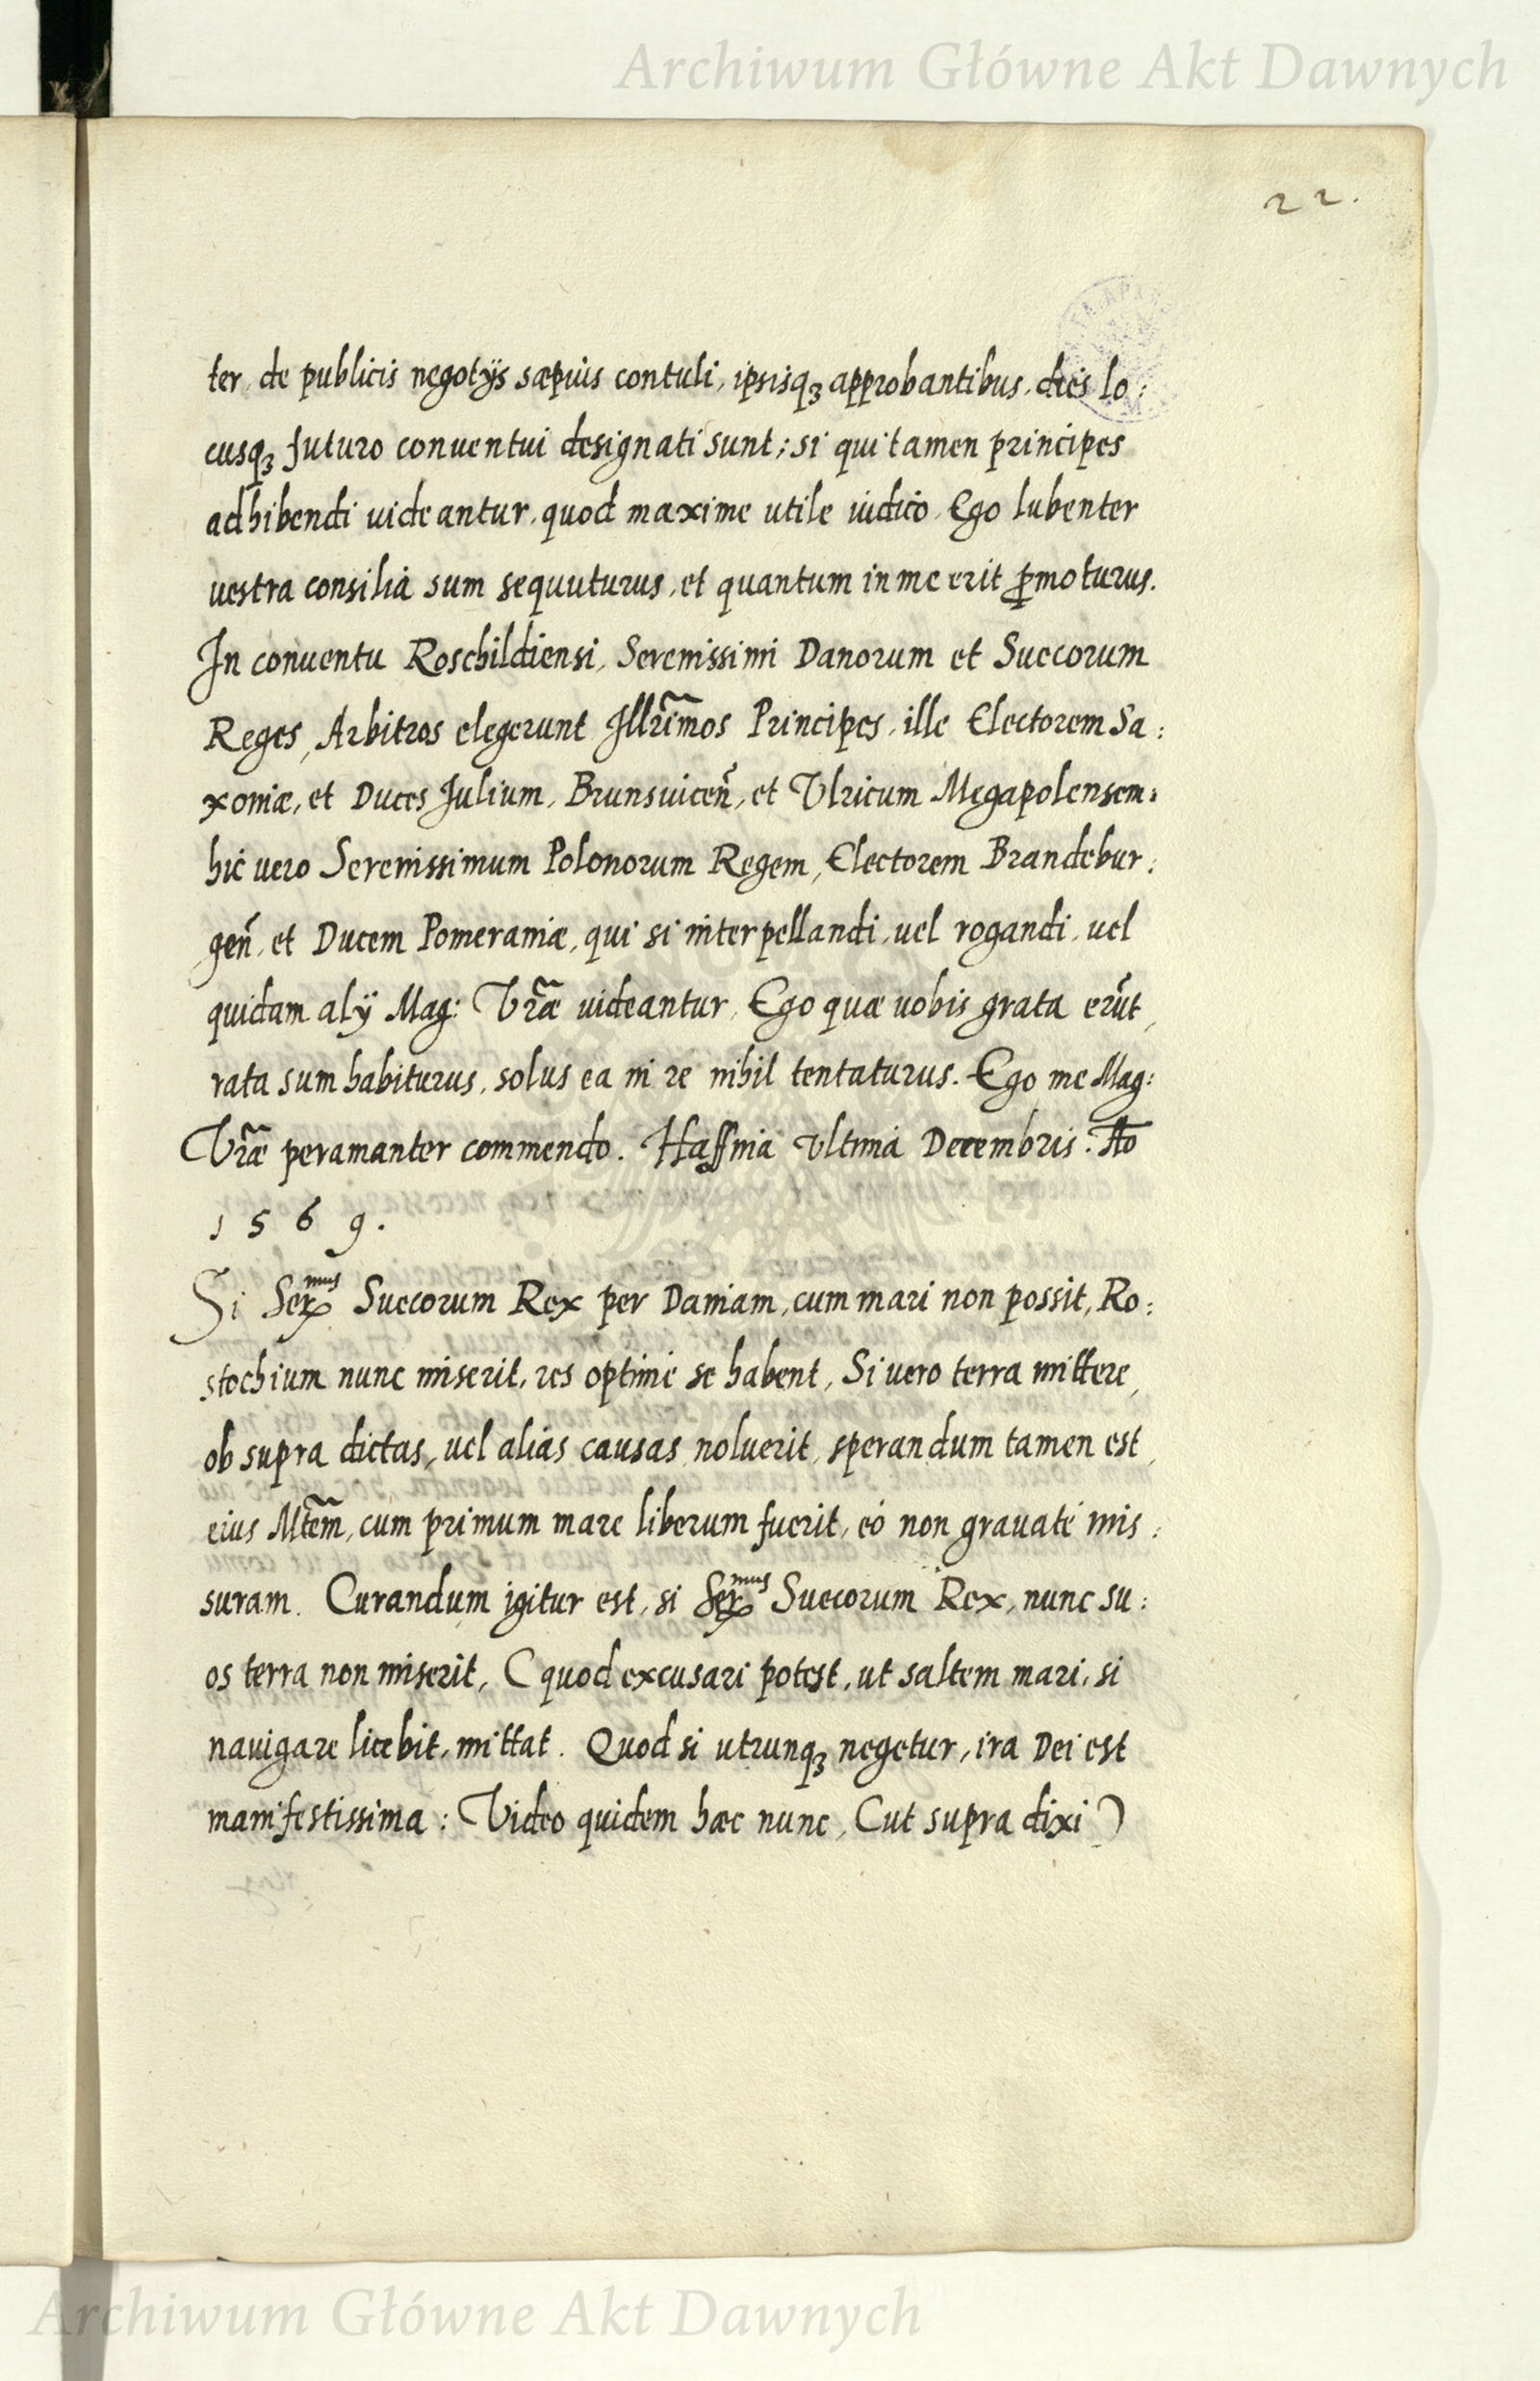 Archiwum Główne Akt Dawnych
22.
ter, de publicis negotijs sæpius contuli, ipsisq₃ approbantibus, dies lo:
cusq₃ futuro conuentui designati sunt; si qui tamen principes
adhibendi uideantur, quod maxime utile iudico, Ego lubenter
uestra consilia sum sequuturus, et quantum in me erit ꝓmoturus.
In conuentu Roschildiensi, Serenissimi Danorum et Suecorum
Reges, Arbitros elegerunt Illr̃imos Principes, ille Electorem Sa:
xoniæ, et Duces Julium, Brunsuiceñ, et Vlricum Megapolensem:
hic uero Serenissimum Polonorum Regem, Electorem Brandebur:
geñ, et Ducem Pomeraniæ, qui si interpellandi, uel rogandi, uel
quidam alÿ Mag: Vr̃æ uideantur, Ego quæ uobis grata erũt,
rata sum habiturus, solus ea in re nihil tentaturus. Ego me Mag:
Vr̃æ peramanter commendo. Haffnia Vltima Decembris. Ãо
1569.
Si Ser^mus Suecorum Rex per Daniam, cum mari non possit, Ro:
stochium nunc miserit, res optimè se habent, Si uero terra mittere,
ob supra dictas, uel alias causas noluerit, sperandum tamen est,
eius Mt̃em, cum primum mare liberum fuerit, eò non grauatè mis:
suram. Curandum igitur est, si Ser^mus Suecorum Rex, nunc su:
os terra non miserit, (quod excusari potest, ut saltem mari, si
nauigare licebit, mittat. Quod si utrunq₃ negetur, ira Dei est
manifestissima: Video quidem hæc nunc, (ut supra dixi)
Archiwum Główne Akt Dawnych